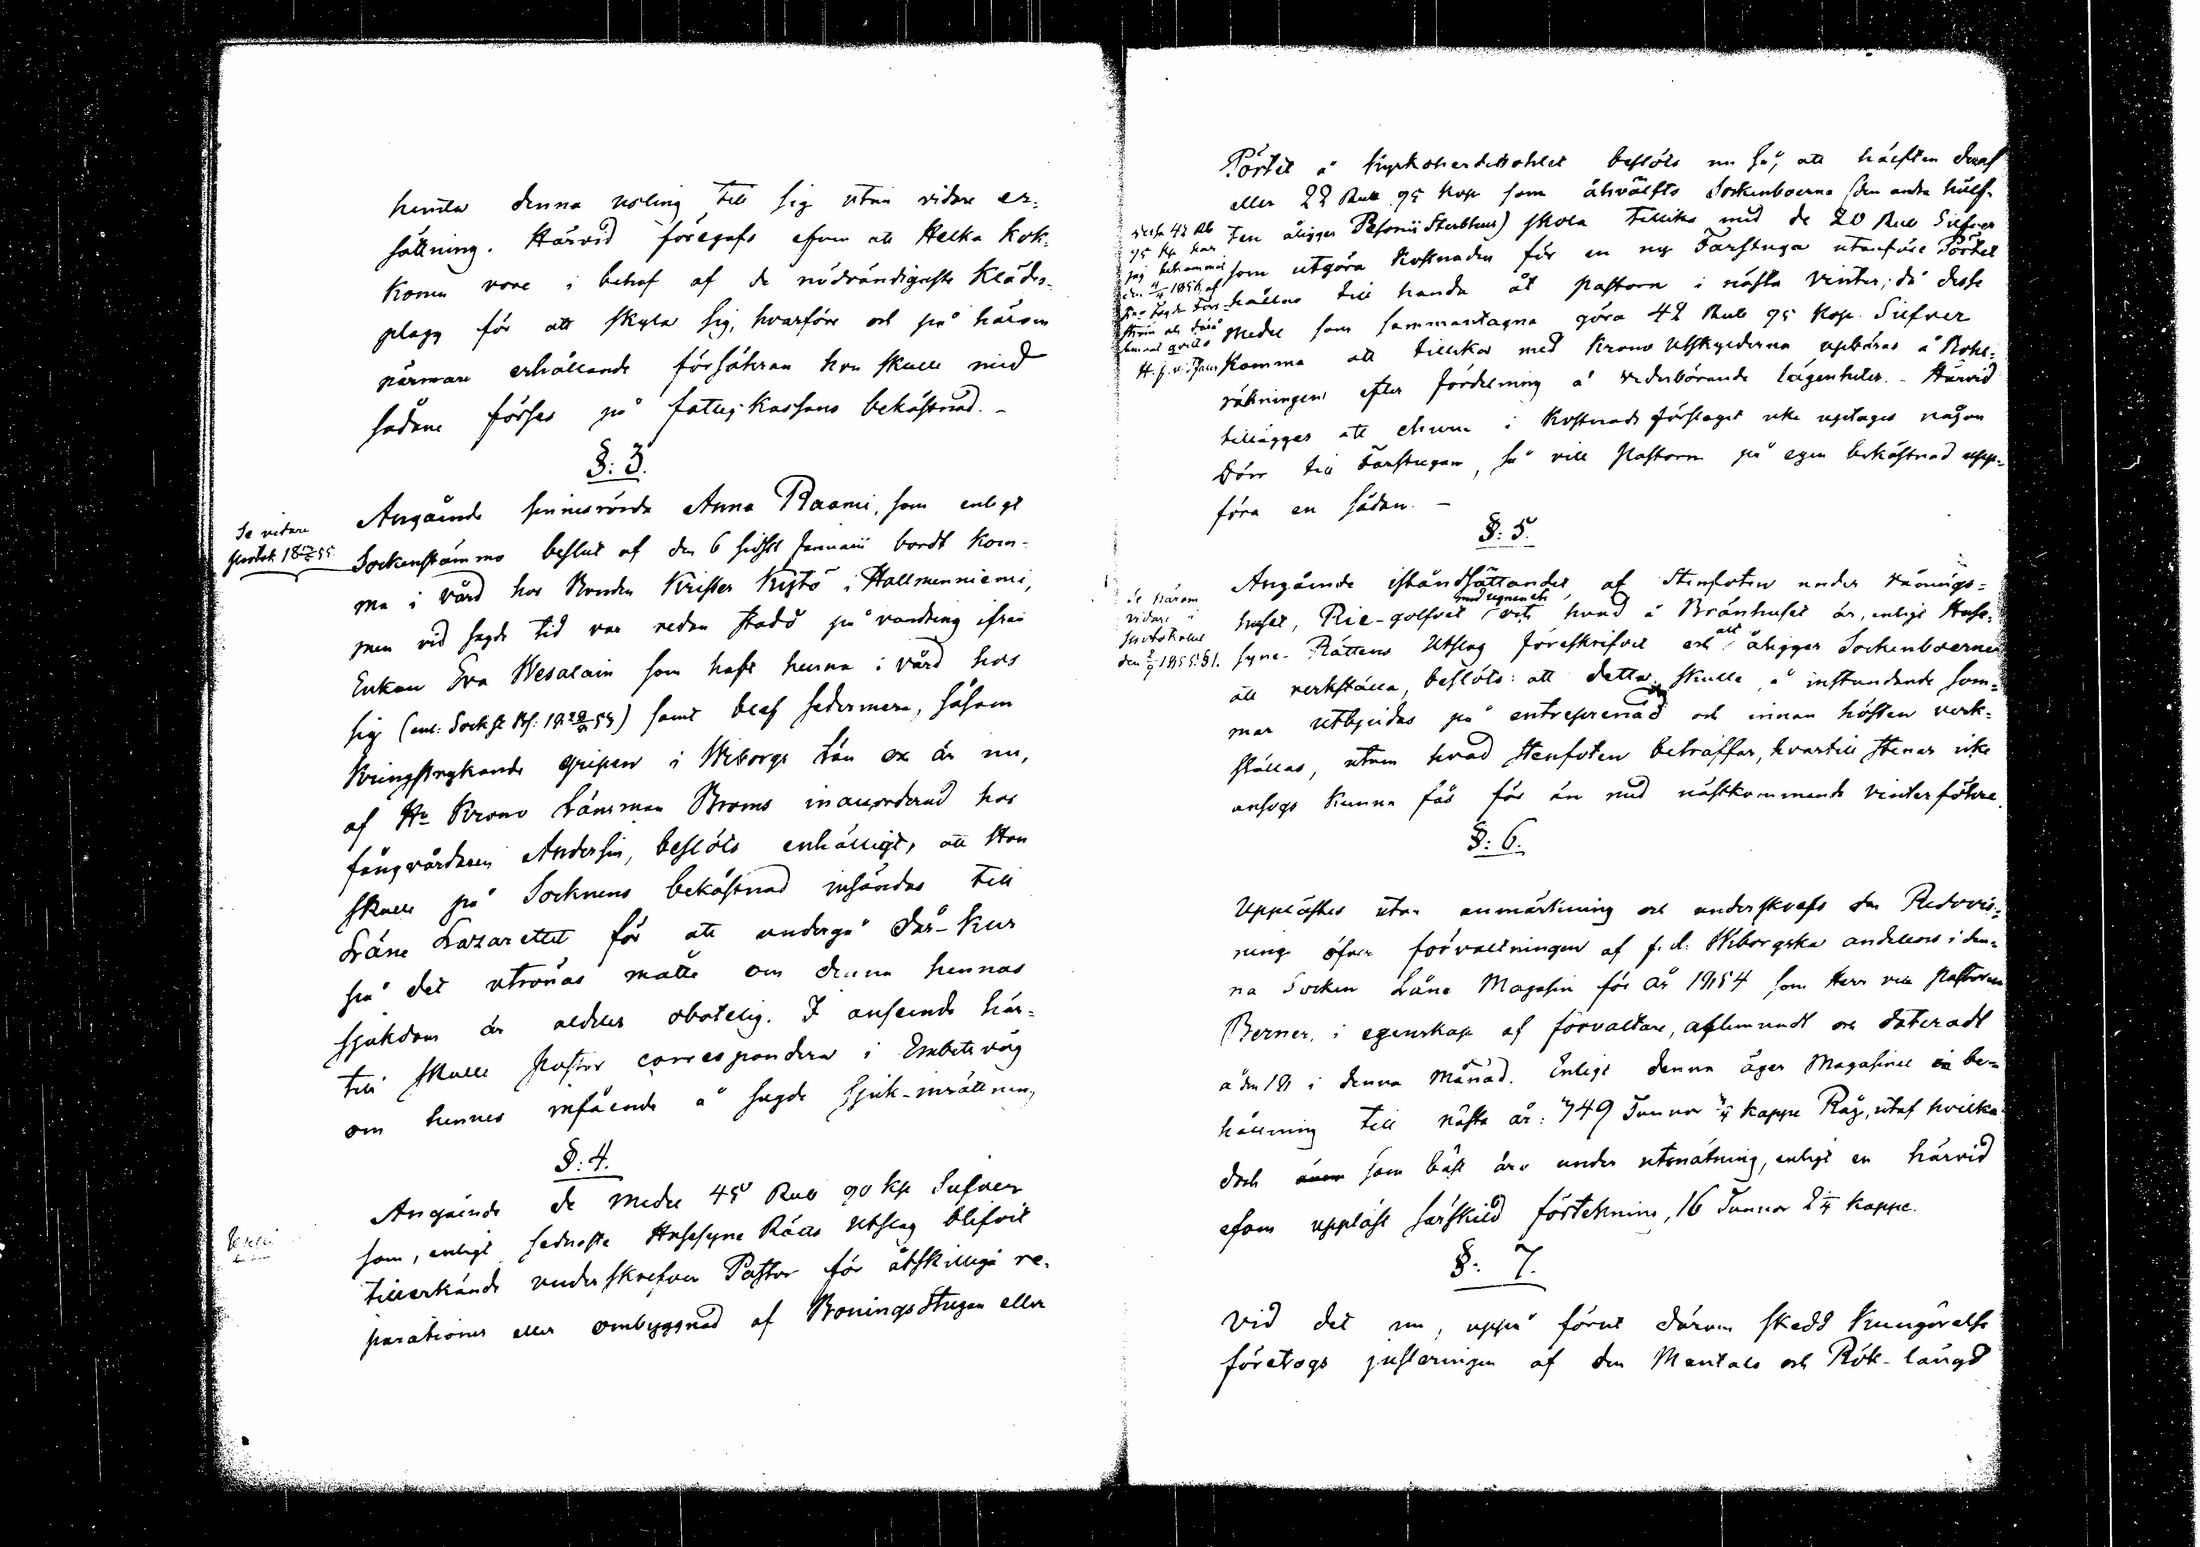 hemta denna usling till sig utan vidare er-
sättning. Härvid föregafs efven att Helka Kok-
konen vore i behof af de nödvändigaste Kläds-
plagg för att skyla sig, hvarföre och på härom
närmare erhållande försäkran hon skulle med
sådane förses på fattig-Kassans bekostnad. -
§: 3.
Angående sinnesrörda Anna Raami, som enligt
Se vidare
Sockenstämmo beslut af den 6 sidstl. Januarii bordt kom-
ma i vård hos Bonden Krister Kystö i Hallmenniemi,
men vid sagde tid var redan stadd på vandring ifrån
Enkan Eva Wesalain som haft henne i vård hos
sig samt blef sedermera, såsom
Kringstrykande gripen i Wiborgs Län och är nu,
af Hr Krono Länsman Broms inackorderad hos
fångvårdaren Andersin, beslöts enhälligt, att Hon
skulle på Socknens bekostnad insändas till
Läns Lazarettet för att undergå där-Kur
på det utrönas måtte om denna hennas
sjukdom är aldeles obotelig. I anseende här-
till skulle Pastor correspondera i Embets väg
om hennes infående å sagde sjuk-inrättning
§: 4.
Angående de medel 45 Rub 90 kp Silfver
som, enligt sednaste Husesyns Rätts Utslag blifvit
tillerkände underskrefven Pastor för åtskilliga re-
parationer eller ombyggnad af Boningsstugan eller
Pörtet å Kyrkoherdebohlet beslöts nu så, att hälften deraf
eller 22 Rub. 95 Kop som åhvälfts Sockenboerna (den andra hälf-
ten åligger Sterbhus) skola tillika med de 20 Rub Silfver
som utgöra Kostnaden för en ny Farstuga utanföre Pörtet
hållas till handa åt pastorn i nästa vinter; då desse
Medel som sammantagna göra 42 Rub 95 Kop. Silfver
Komma att tillika med Krono Utskylderna uptäras å Bohl-
räkningen efter fördelning å vederbörande lägenheter. - Härvid
tillägges att ehuru i Kostnads förslaget icke uptages någon
Dörr till Farstugan, så vill Pastorn på egen bekostnad upp-
föra en sådan. -
§: 5.
Angående iståndsättandet af Stenfoten under
Se härom
vidare i
Protokollet
den 2/9 1855 § 1.
huset, Rie-golfvet hvad å Brånhuset är, enligt Huse-
syns-Rättens Utslag föreskrifvet och att åligger Sockenboerne
att verkställa, beslöts: att detta skulle å instundande som-
mar utbjudas på entreprenad och innan hösten verk-
ställas, utom hvad Stenfoten beträffar, hvartill Stenar icke
ansågs kunna fås för än med nästkommande vinterföhre.
§: 6.
Upplästes utan anmärkning och underskrefs den Redovis-
ning öfver förvaltningen af f.d. Wiborgska andelens i den-
na Socken Låne Magasin för år 1854 som Herr vice Pastoren
Berner, i egenskap af förvaltare, aflemnadt och dateradt
å den 18 i denna Månad. Enligt denna äger Magasinet i be-
hållning till nästa år: 749 Tunnor kappe Råg, utaf hvilka
doch som bäst äro under utmätning, enligt en härvid
efven uppläst särskild förtekning, 16 Tunnor 2 1/4 kappe.
§: 7.
Vid det nu, uppå förut därom skedd kungörelse
företogs justeringen af den Mantals och Rök-längd